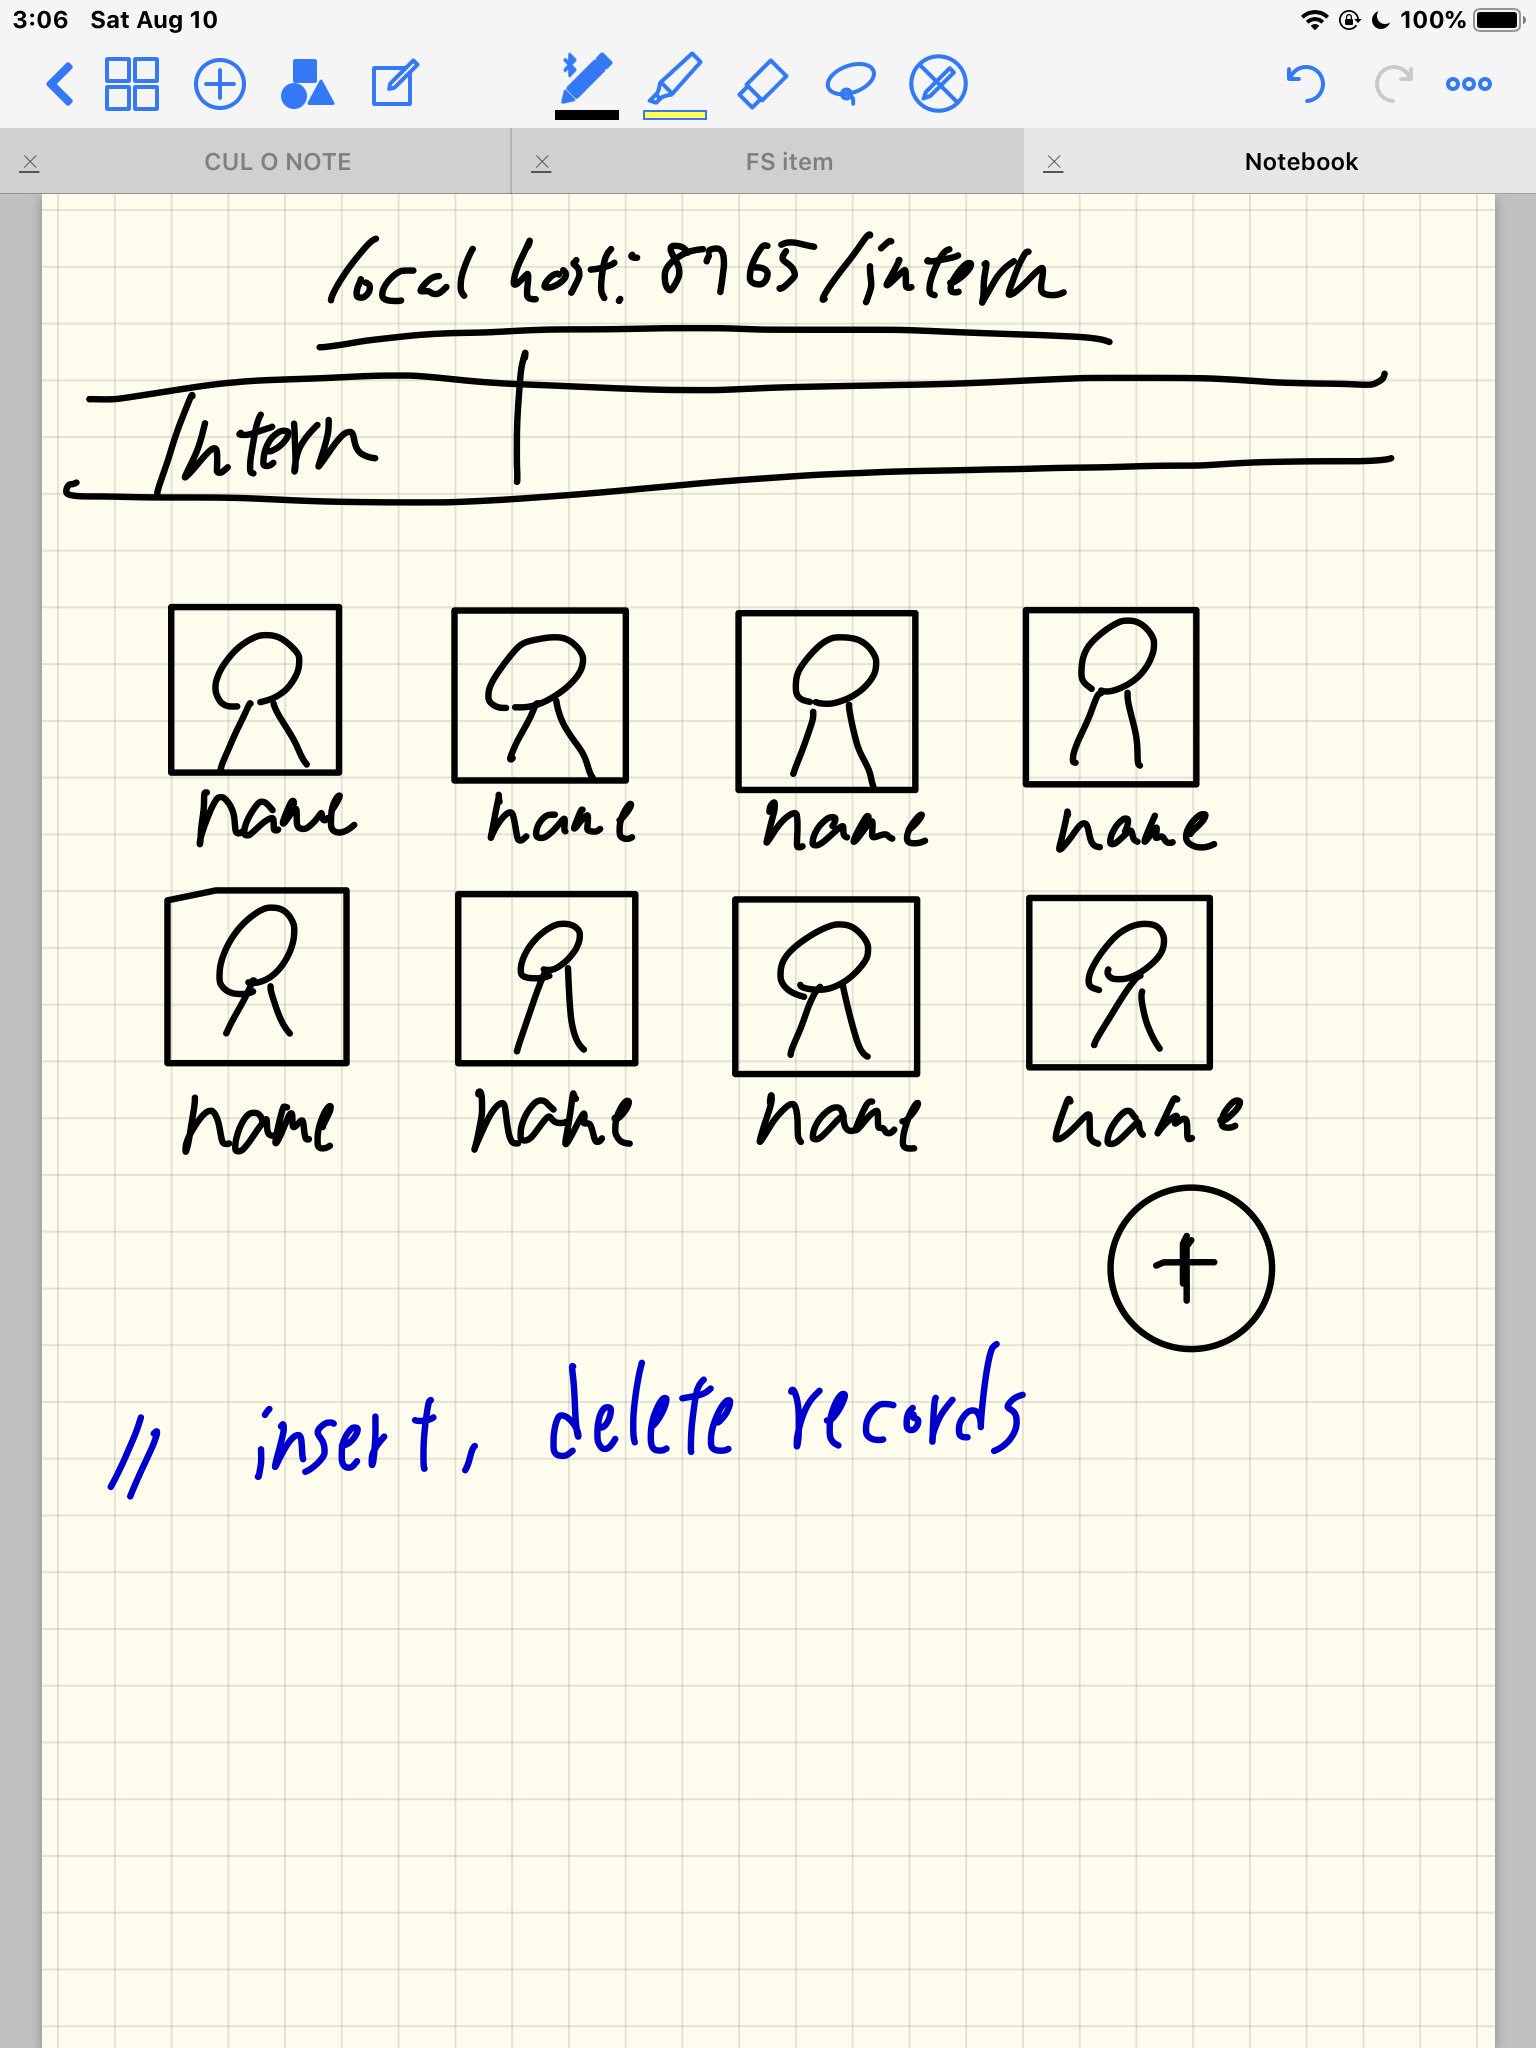 3:06 Sat Aug 10 100%
CUL O NOTE FS item Notebook
local host:8765/intern
Intern
name name name name
name name name name
+
// insert, delete records